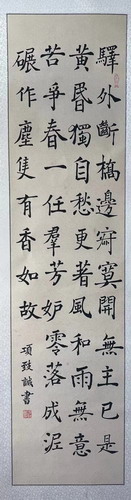 驛外斷橋邊寂寞開無主已是
黃昬獨自愁更著風和雨無意
苦爭春一任羣芳妒零落成泥
碾作塵隻有香如故
項致誠書